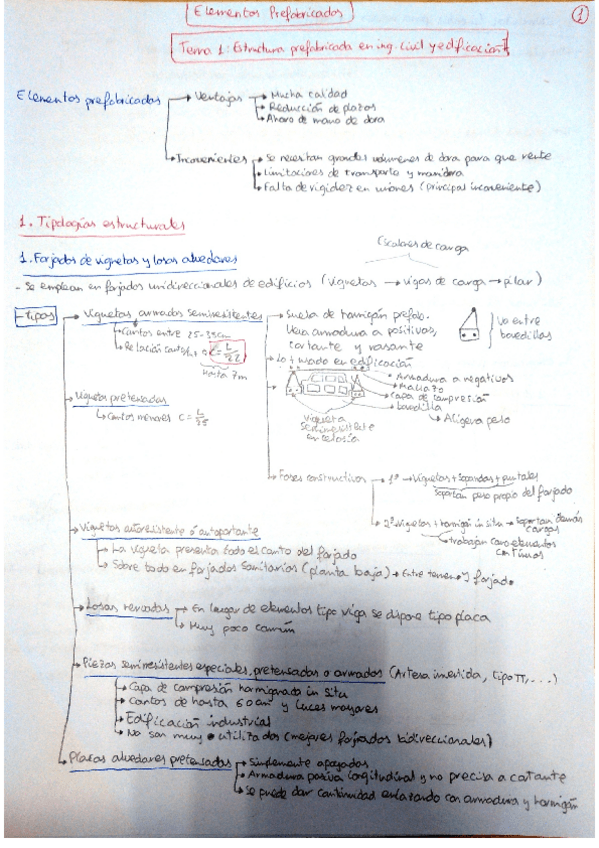 Elementos Prefabricados
1
Tema 1: Estructura prefabricada en ing. civil y edificación
Elementos prefabricados → Ventajas → Mucha calidad
→ Reducción de plazos
→ Ahorro de mano de obra
→ Inconvenientes → Se necesitan grandes volúmenes de obra para que rente
→ Limitaciones de transporte y maniobra
→ Falta de rigidez en uniones (principal inconveniente)
1. Tipologías estructurales
(Escalones de carga
1. Forjados de viguetas y losas alveolares
- Se emplean en forjados unidireccionales de edificios (viguetas → vigas de carga → pilar)
- Tipos → Viguetas armadas semiresistentes → Suela de hormigón prefab.
Lleva armadura a positivos,
cortante y rasante
Va entre
bovedillas
→ Cantos entre 25-35cm
→ Relación canto/luz → C = L/22
hasta 7m
→ Lo + usado en edificación
→ Armadura a negativos
→ Mallazo
→ Capa de compresión
→ bovedilla
→ Aligera peso
vigueta
semiresistente
en celosía
→ Viguetas pretensadas
→ Cantos menores C = L/25
→ Fases constructivas → 1º → Viguetas + sopandas + puntales
Soportan peso propio del forjado
→ 2º Viguetas + hormigón in situ → Soportan demás
cargas
→ trabajan como elementos
continuos
→ Viguetas autoresistente ó autoportante
→ La vigueta presenta todo el canto del forjado
→ Sobre todo en forjados sanitarios (planta baja) → Entre terreno y forjado
→ Losas nervadas → En lugar de elementos tipo viga se dispone tipo placa
→ Muy poco común
→ Piezas semiresistentes especiales, pretensadas o armadas (Artesa invertida, tipo π, ...)
→ Capa de compresión hormigonada in situ
→ Cantos de hasta 60cm y luces mayores
→ Edificación industrial
→ No son muy utilizados (mejores forjados bidireccionales)
→ Placas alveolares pretensadas → Simplemente apoyadas
→ Armadura pasiva longitudinal y no precisa a cortante
→ Se puede dar continuidad enlazando con armadura y hormigón